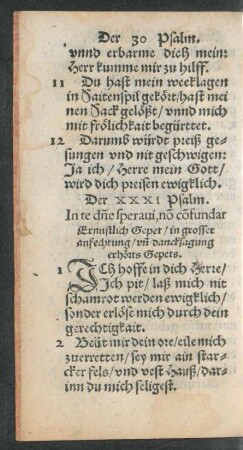 Der 30 Psalm.
vnnd erbarme dich mein:
Herr kumme mir zu hilff.
11 Du hast mein weeklagen
in Saitenspil gekört/hast mei
nen Sack gelößt/vnnd mich
mit frölichkait begürttet.
12 Darumb würdt preiß ge-
sungen vnd nit geschwigen:
Ja ich/Herre mein Gott/
wird dich preisen ewigklich.
Der XXXI Psalm.
In te dñe speraui, nō cōfundar
Ernnstlich Gepet/in grosser
anfechtung/vñ dancksagung
erhörts Gepets.
1 ICh hoffe in dich Herre/
Ich pit/laß mich nit
schamrot werden ewigklich/
sonder erlöse mich durch dein
gerechtigkait.
2 Beüt mir dein ore/eile mich
zuerretten/sey mir ain star-
cker fels/vnd vest Hauß/dar-
inn du mich seligest.